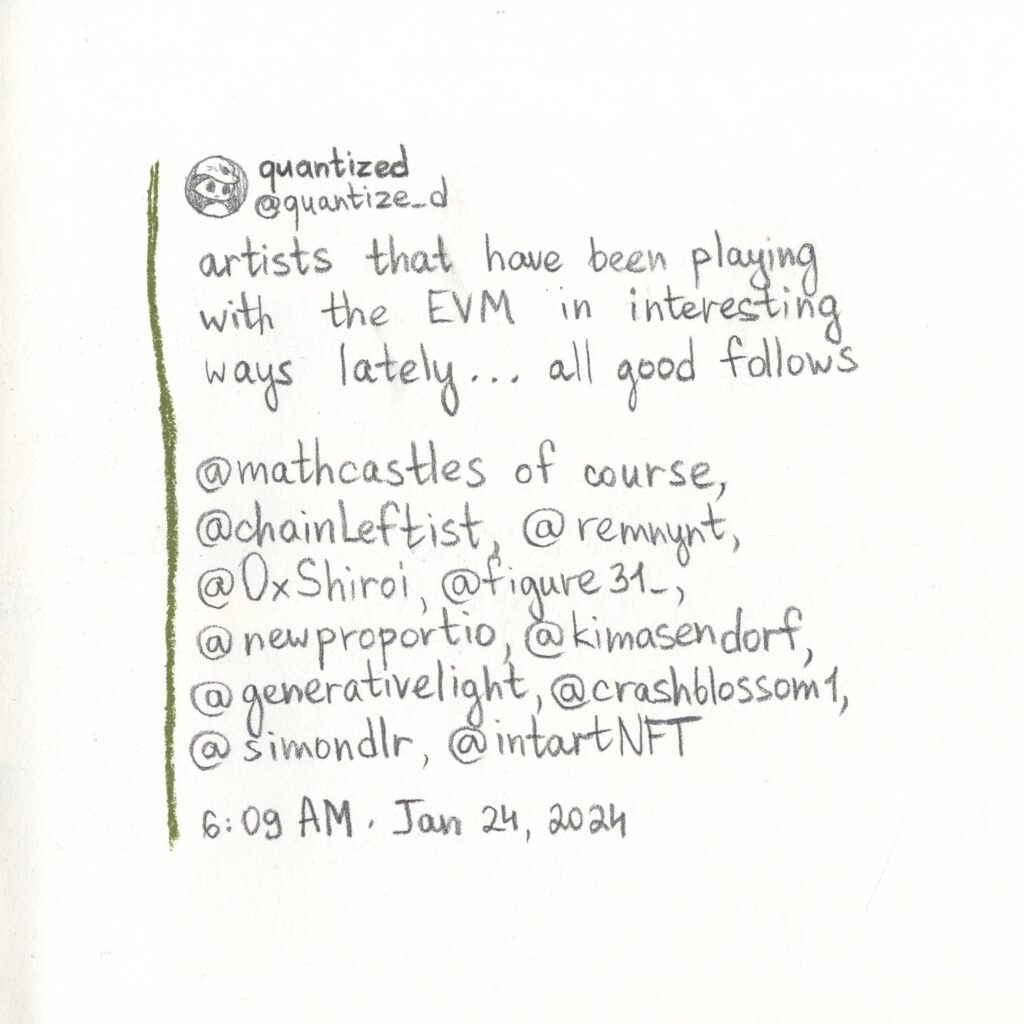 quantized
@quantize_d
artists that have been playing
with the EVM in interesting
ways lately... all good follows
@mathcastles of course,
@chainLeftist, @remnynt,
@0xShiroi, @figure31_,
@newproportio, @kimasendorf,
@generativelight, @crashblossom1,
@simondlr, @intartNFT
6:09 AM · Jan 24, 2024